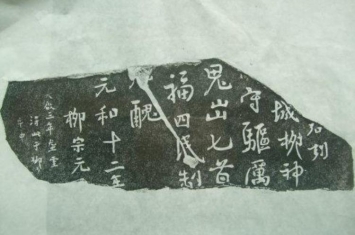 石刻
城柳神
守驱厲
鬼出七首
福四民制
九醜
元和十二年
柳宗元
天啟三年